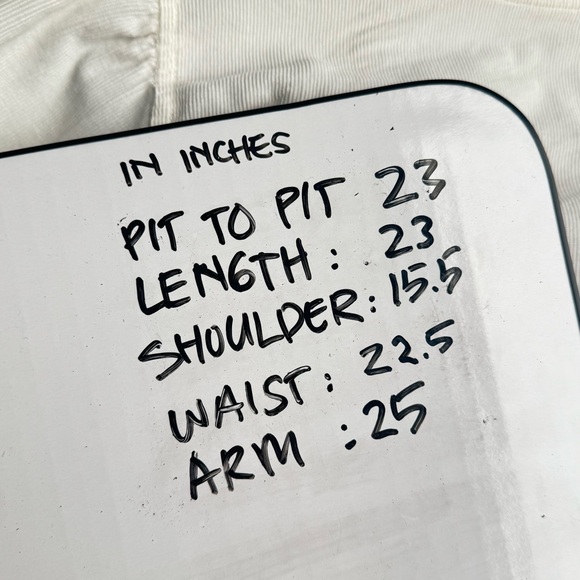 IN INCHES
PIT TO PIT 23
LENGTH: 23
SHOULDER: 15.5
WAIST: 22.5
ARM : 25